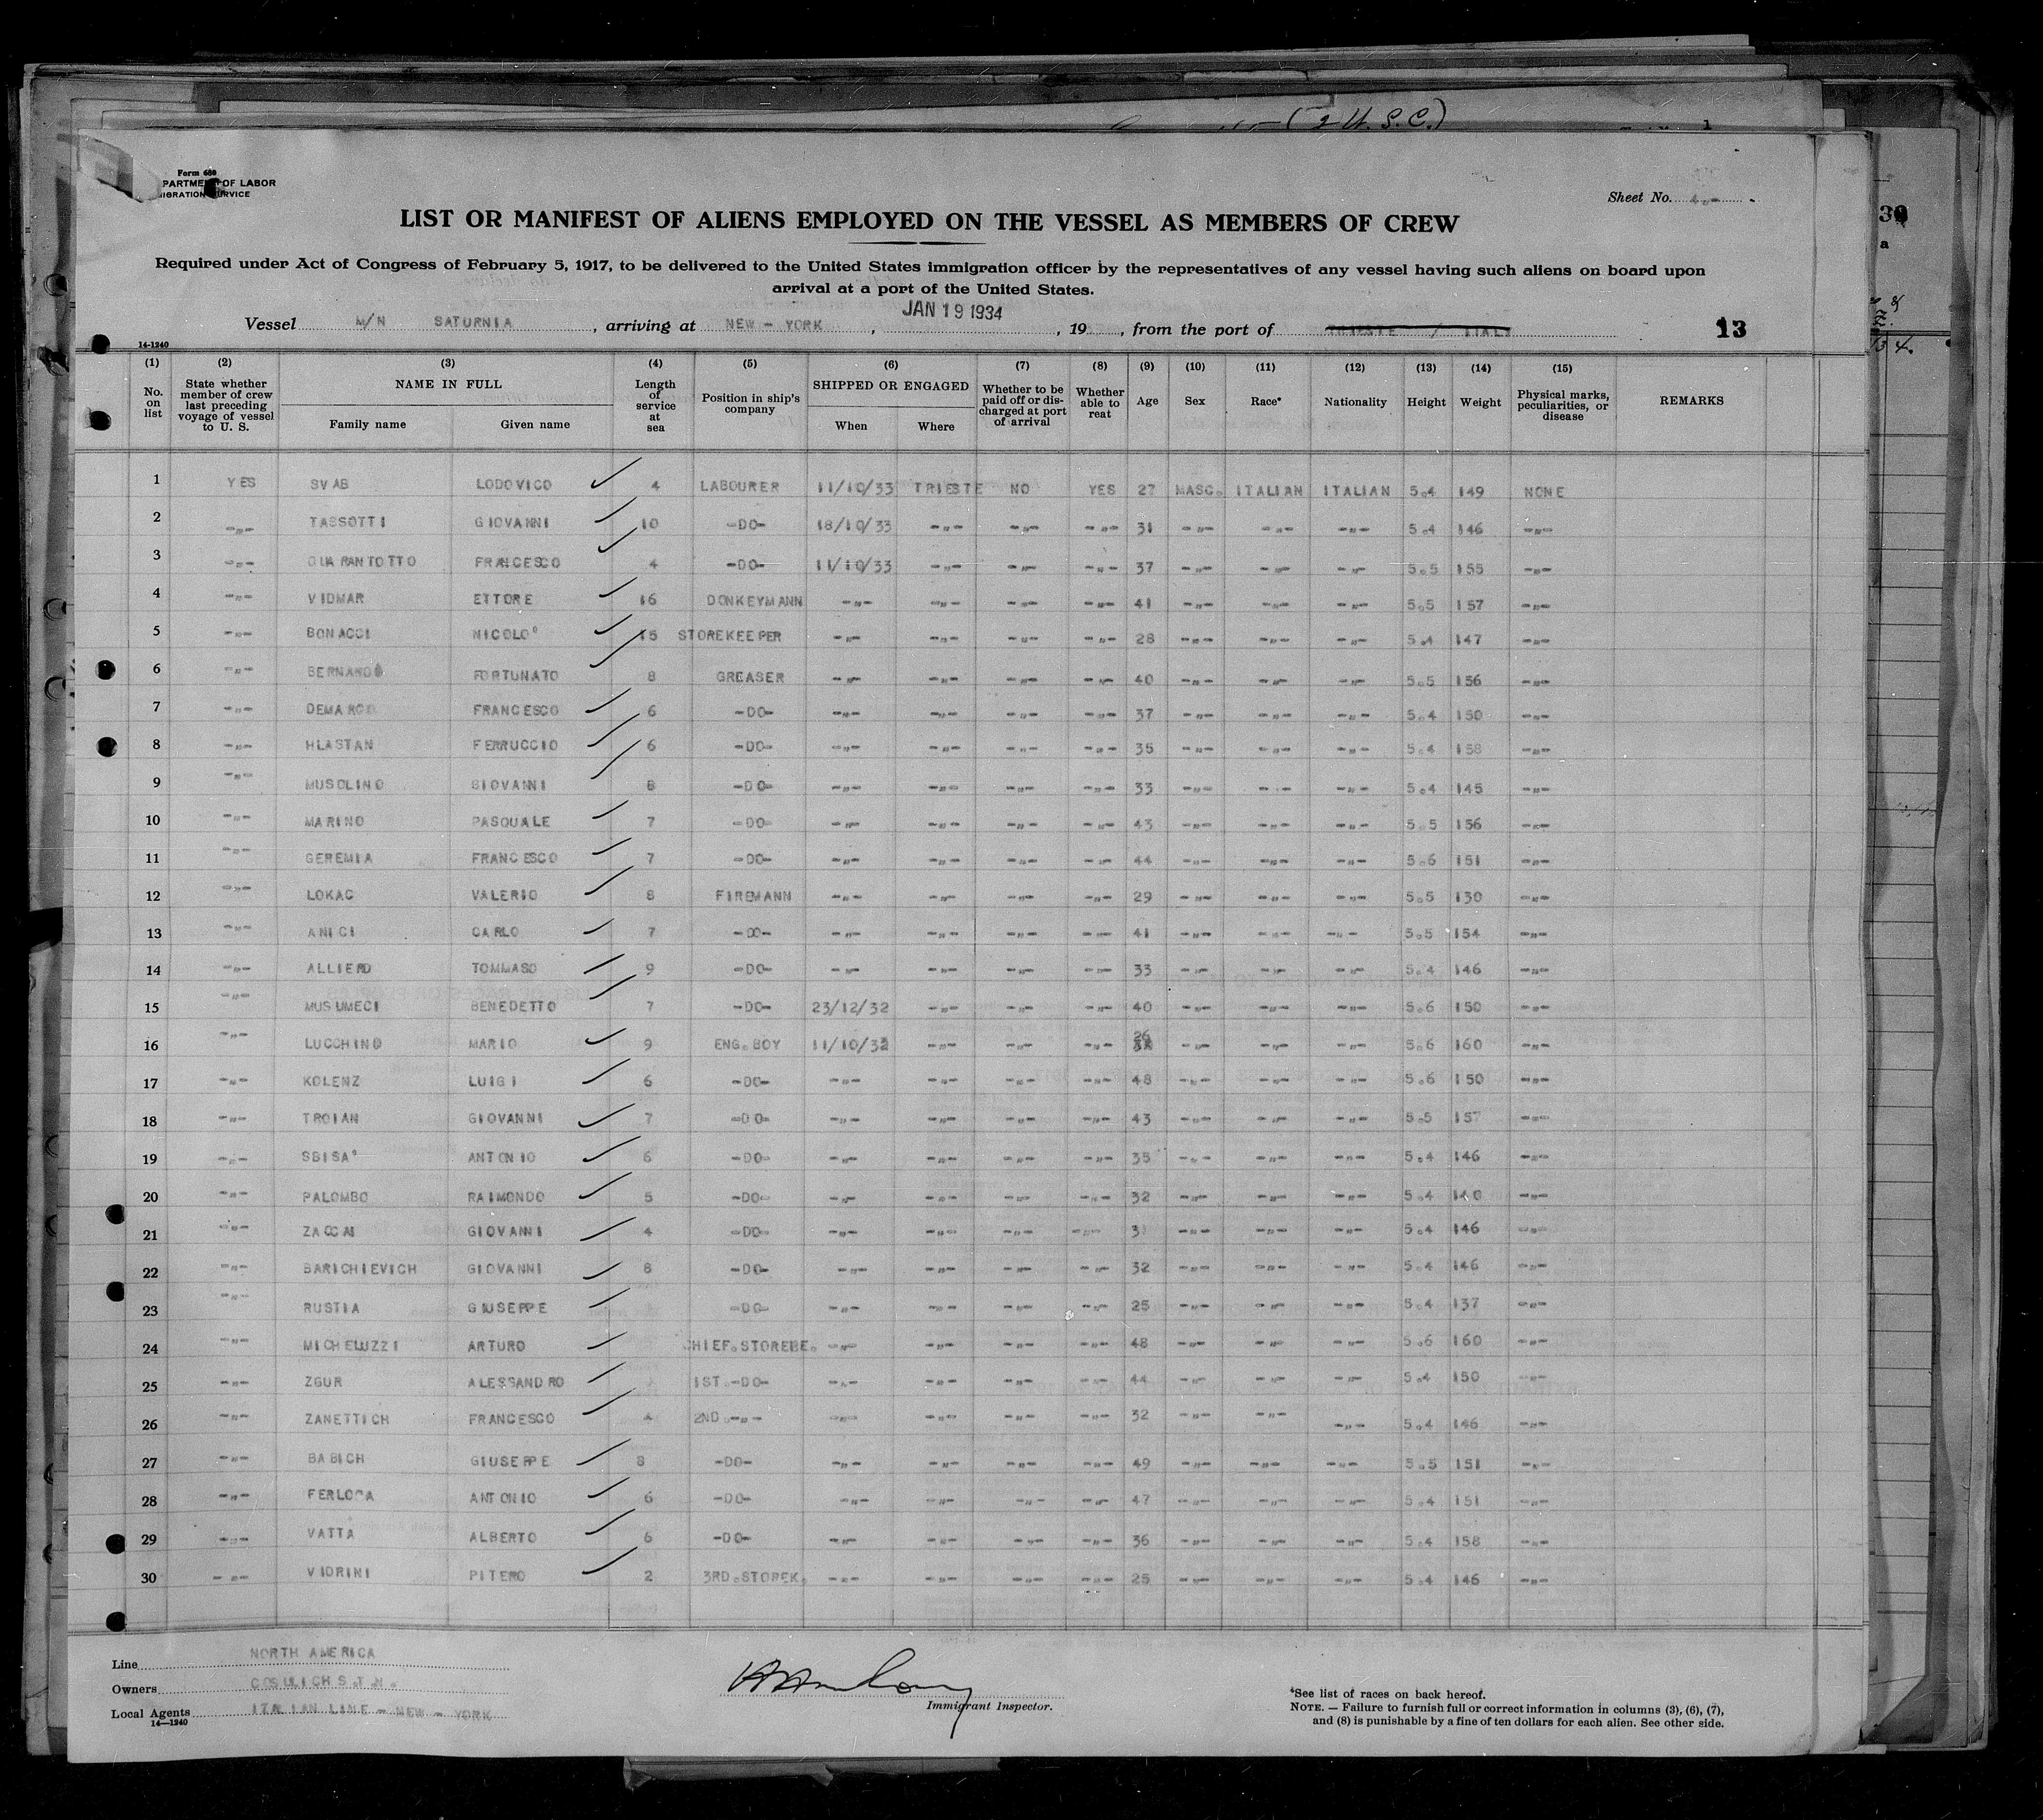 ( 2 U.S.C.)
Form 680
PARTMENT OF LABOR
MIGRATION SERVICE
Sheet No.
LIST OR MANIFEST OF ALIENS EMPLOYED ON THE VESSEL AS MEMBERS OF CREW
Required under Act of Congress of February 5, 1917, to be delivered to the United States immigration officer by the representatives of any vessel having such aliens on board upon
arrival at a port of the United States.
Vessel M/N SATURNIA, arriving at NEW - YORK, JAN 19 1934, 19, from the port of TRIESTE / ITALY 13
14-1240
(1) (2) (3) (4) (5) (6) (7) (8) (9) (10) (11) (12) (13) (14) (15)
No. on list State whether member of crew last preceding voyage of vessel to U. S. NAME IN FULL Family name Given name Length of service at sea Position in ship's company SHIPPED OR ENGAGED When Where Whether to be paid off or discharged at port of arrival Whether able to reat Age Sex Race* Nationality Height Weight Physical marks, peculiarities, or disease REMARKS
1 YES SVAB LODOVICO 4 LABOURER 11/10/33 TRIESTE NO YES 27 MASC. ITALIAN ITALIAN 5.4 149 NONE
2 -"- TASSOTTI GIOVANNI 10 -DO- 18/10/33 -"- -"- -"- 31 -"- -"- -"- 5.4 146 -"-
3 -"- QUARANTOTTO FRANCESCO 4 -DO- 11/10/33 -"- -"- -"- 37 -"- -"- -"- 5.5 155 -"-
4 -"- VIDMAR ETTORE 16 DONKEYMANN -"- -"- -"- -"- 41 -"- -"- -"- 5.5 157 -"-
5 -"- BONACCI NICOLO' 15 STOREKEEPER -"- -"- -"- -"- 28 -"- -"- -"- 5.4 147 -"-
6 -"- BERNARDO FORTUNATO 8 GREASER -"- -"- -"- -"- 40 -"- -"- -"- 5.5 156 -"-
7 -"- DEMARCO FRANCESCO 6 -DO- -"- -"- -"- -"- 37 -"- -"- -"- 5.4 150 -"-
8 -"- HLASTAN FERRUCCIO 6 -DO- -"- -"- -"- -"- 35 -"- -"- -"- 5.4 158 -"-
9 -"- MUSOLINO GIOVANNI 8 -DO- -"- -"- -"- -"- 33 -"- -"- -"- 5.4 145 -"-
10 -"- MARINO PASQUALE 7 -DO- -"- -"- -"- -"- 43 -"- -"- -"- 5.5 156 -"-
11 -"- GEREMIA FRANCESCO 7 -DO- -"- -"- -"- -"- 44 -"- -"- -"- 5.6 151 -"-
12 -"- LOKAC VALERIO 8 FIREMANN -"- -"- -"- -"- 29 -"- -"- -"- 5.5 130 -"-
13 -"- ANICI CARLO 7 -DO- -"- -"- -"- -"- 41 -"- -"- -"- 5.5 154 -"-
14 -"- ALLIERO TOMMASO 9 -DO- -"- -"- -"- -"- 33 -"- -"- -"- 5.4 146 -"-
15 -"- MUSUMECI BENEDETTO 7 -DO- 23/12/32 -"- -"- -"- 40 -"- -"- -"- 5.6 150 -"-
16 -"- LUCCHINO MARIO 9 ENG. BOY 11/10/32 -"- -"- -"- 26 -"- -"- -"- 5.6 160 -"-
17 -"- KOLENZ LUIGI 6 -DO- -"- -"- -"- -"- 48 -"- -"- -"- 5.6 150 -"-
18 -"- TROIAN GIOVANNI 7 -DO- -"- -"- -"- -"- 43 -"- -"- -"- 5.5 157 -"-
19 -"- SBISA' ANTONIO 6 -DO- -"- -"- -"- -"- 35 -"- -"- -"- 5.4 146 -"-
20 -"- PALOMBO RAIMONDO 5 -DO- -"- -"- -"- -"- 32 -"- -"- -"- 5.4 140 -"-
21 -"- ZACCAI GIOVANNI 4 -DO- -"- -"- -"- -"- -"- -"- -"- 5.4 146 -"-
22 -"- BARICHIEVICH GIOVANNI 8 -DO- -"- -"- -"- -"- 32 -"- -"- -"- 5.4 146 -"-
23 -"- RUSTIA GIUSEPPE -DO- -"- -"- -"- -"- 25 -"- -"- -"- 5.4 137 -"-
24 -"- MICHELUZZI ARTURO CHIEF.STOREBE. -"- -"- -"- -"- 48 -"- -"- -"- 5.6 160 -"-
25 -"- ZGUR ALESSANDRO 1ST.-DO- -"- -"- -"- -"- 44 -"- -"- -"- 5.4 150 -"-
26 -"- ZANETTICH FRANCESCO 4 2ND.-"- -"- -"- -"- -"- 32 -"- -"- -"- 5.4 146 -"-
27 -"- BABICH GIUSEPPE 8 -DO- -"- -"- -"- -"- 49 -"- -"- -"- 5.5 151 -"-
28 -"- FERLORA ANTONIO 6 -DO- -"- -"- -"- -"- 47 -"- -"- -"- 5.4 151 -"-
29 -"- VATTA ALBERTO 6 -DO- -"- -"- -"- -"- 36 -"- -"- -"- 5.4 158 -"-
30 -"- VIDRINI PITERO 2 3RD.STOREK. -"- -"- -"- -"- 25 -"- -"- -"- 5.4 146 -"-
Line NORTH AMERICA
Owners COSULICH S.T.N.
Local Agents ITALIAN LINE - NEW - YORK
14-1240
Immigrant Inspector.
*See list of races on back hereof.
NOTE. — Failure to furnish full or correct information in columns (3), (6), (7),
and (8) is punishable by a fine of ten dollars for each alien. See other side.